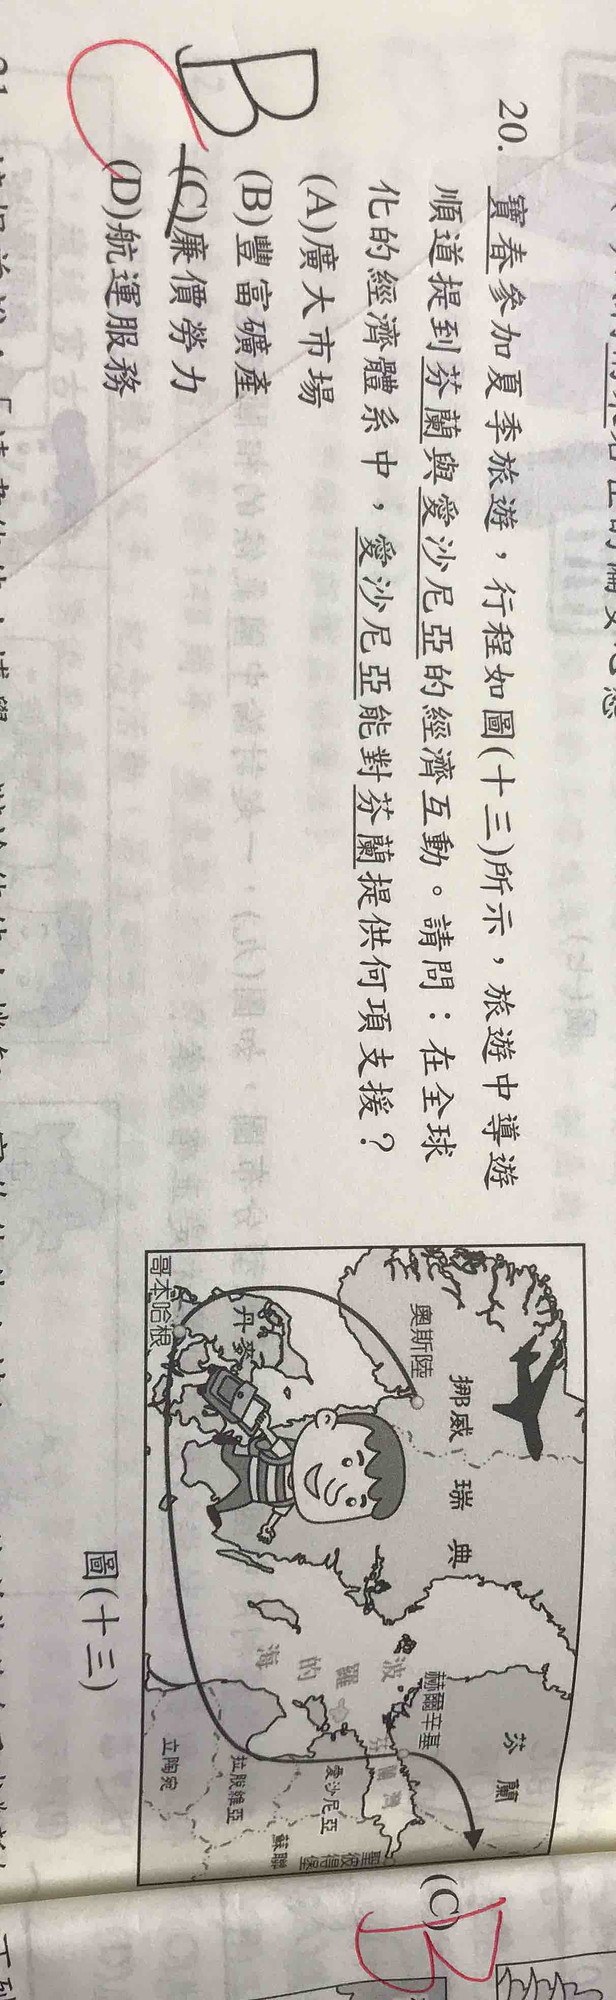 20. 寶春參加夏季旅遊，行程如圖(十三)所示，旅遊中導遊
順道提到芬蘭與愛沙尼亞的經濟互動。請問：在全球
化的經濟體系中，愛沙尼亞能對芬蘭提供何項支援？
(A)廣大市場
(B)豐富礦產
(C)廉價勞力
(D)航運服務
B
C
挪威
瑞典
芬蘭
奧斯陸
赫爾辛基
丹麥
哥本哈根
波羅的海
芬蘭灣
愛沙尼亞
聖彼得堡
蘇聯
拉脫維亞
立陶宛
圖(十三)
(C)
B